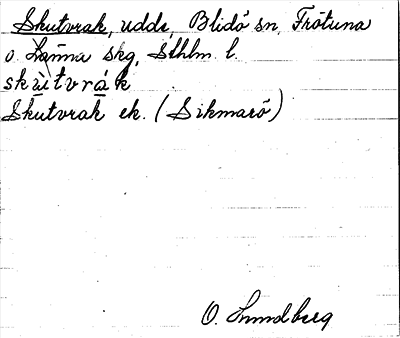 Skutvrak, udde, Blidö sn, Frötuna
o. Länna skg, Sthlm l.
skùtvrák
Skutvrak ek. (Sikmarö)
O. Lundberg